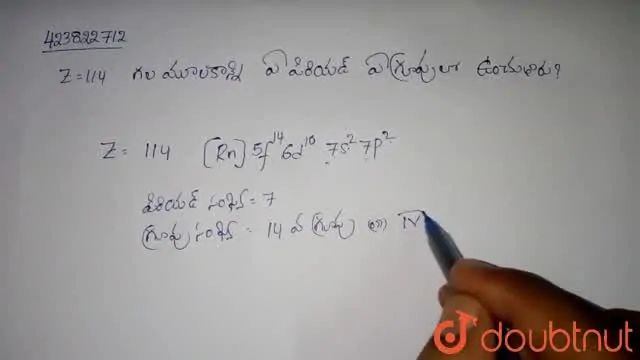 423822712
Z=114 గల మూలకాన్ని ఏ పిరియడ్ ఏ గ్రూపులో ఉంచుతారు?
Z = 114 [Rn] 5f¹⁴ 6d¹⁰ 7s² 7p²
పిరియడ్ సంఖ్య = 7
గ్రూపు సంఖ్య = 14 వ గ్రూపు (లేదా) IV
doubtnut